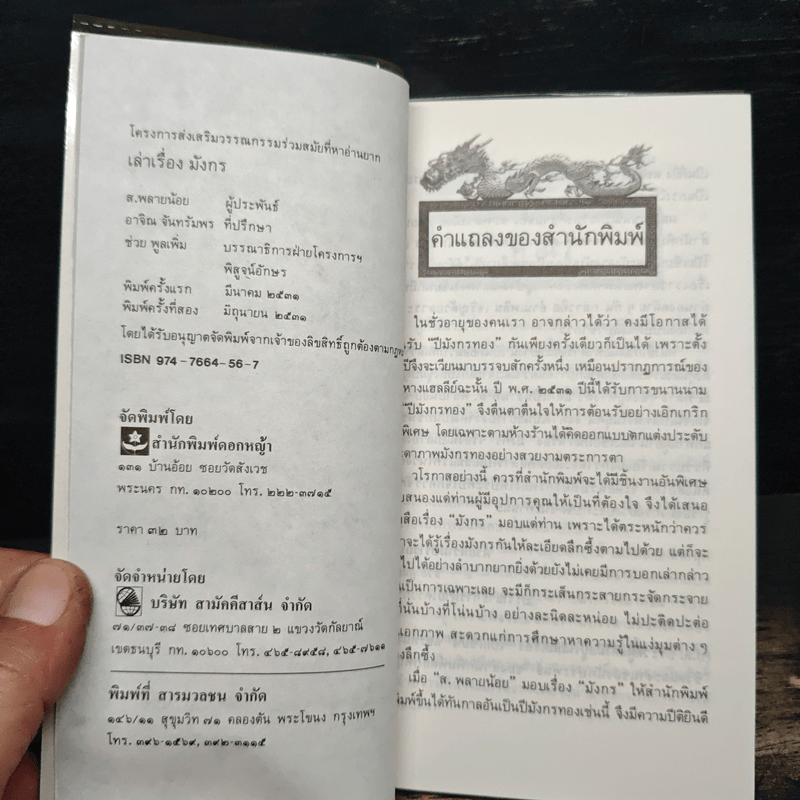 โครงการส่งเสริมวรรณกรรมร่วมสมัยที่หาอ่านยาก
เล่าเรื่อง มังกร
ส.พลายน้อย ผู้ประพันธ์
อาจิณ จันทรัมพร ที่ปรึกษา
ช่วย พูลเพิ่ม บรรณาธิการฝ่ายโครงการฯ
พิสูจน์อักษร
พิมพ์ครั้งแรก มีนาคม ๒๕๓๑
พิมพ์ครั้งที่สอง มิถุนายน ๒๕๓๑
โดยได้รับอนุญาตจัดพิมพ์จากเจ้าของลิขสิทธิ์ถูกต้องตามกฎหมาย
ISBN 974-7664-56-7
จัดพิมพ์โดย
สำนักพิมพ์ดอกหญ้า
๑๓๑ บ้านอ้อย ซอยวัดสังเวช
พระนคร กท. ๑๐๒๐๐ โทร. ๒๒๒-๓๗๑๕
ราคา ๓๒ บาท
จัดจำหน่ายโดย
บริษัท สามัคคีสาส์น จำกัด
๗๑/๓๗-๓๘ ซอยเทศบาลสาย ๒ แขวงวัดกัลยาณ์
เขตธนบุรี กท. ๑๐๖๐๐ โทร. ๔๖๕-๘๙๕๘, ๔๖๕-๗๖๑๑
พิมพ์ที่ สารมวลชน จำกัด
๑๔๖/๑๑ สุขุมวิท ๗๑ คลองตัน พระโขนง กรุงเทพฯ
โทร. ๓๙๖-๑๕๖๙, ๓๙๒-๓๑๑๕
คำแถลงของสำนักพิมพ์
ในชั่วอายุของคนเรา อาจกล่าวได้ว่า คงมีโอกาสได้
รับ “ปีมังกรทอง” กันเพียงครั้งเดียวก็เป็นได้ เพราะตั้ง
ปีจึงจะเวียนมาบรรจบสักครั้งหนึ่ง เหมือนปรากฏการณ์ของ
หางแฮลลีย์ฉะนั้น ปี พ.ศ. ๒๕๓๑ ปีนี้ได้รับการขนานนาม
“ปีมังกรทอง” จึงตื่นตาตื่นใจให้การต้อนรับอย่างเอิกเกริก
พิเศษ โดยเฉพาะตามห้างร้านได้คิดออกแบบตกแต่งประดับ
ตาภาพมังกรทองอย่างสวยงามตระการตา
วโรกาสอย่างนี้ ควรที่สำนักพิมพ์จะได้มีชิ้นงานอันพิเศษ
บสนองแด่ท่านผู้มีอุปการคุณให้เป็นที่ต้องใจ จึงได้เสนอ
สือเรื่อง “มังกร” มอบแด่ท่าน เพราะได้ตระหนักว่าควร
จะได้รู้เรื่องมังกรกันให้ละเอียดลึกซึ้งตามไปด้วย แต่ก็จะ
ไปได้อย่างลำบากยากยิ่งด้วยยังไม่เคยมีการบอกเล่ากล่าว
เป็นการเฉพาะเลย จะมีก็กระเส็นกระสายกระจัดกระจาย
ที่นั่นบ้างที่โน่นบ้าง อย่างละนิดละหน่อย ไม่ปะติดปะต่อ
นเอกภาพ สะดวกแก่การศึกษาหาความรู้ในแง่มุมต่าง ๆ
งลึกซึ้ง
เมื่อ “ส. พลายน้อย” มอบเรื่อง “มังกร” ให้สำนักพิมพ์
พิมพ์ขึ้นได้ทันกาลอันเป็นปีมังกรทองเช่นนี้ จึงมีความปีติยินดี